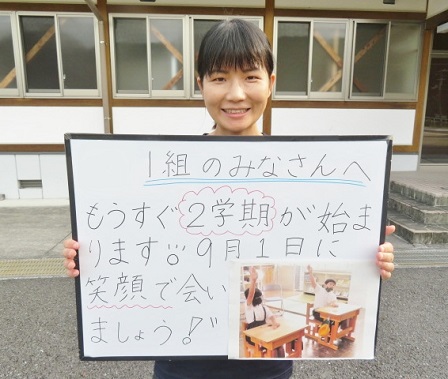 1組のみなさんへ
もうすぐ2学期が始ま
ります 9月1日に
笑顔で会い
ましょう!